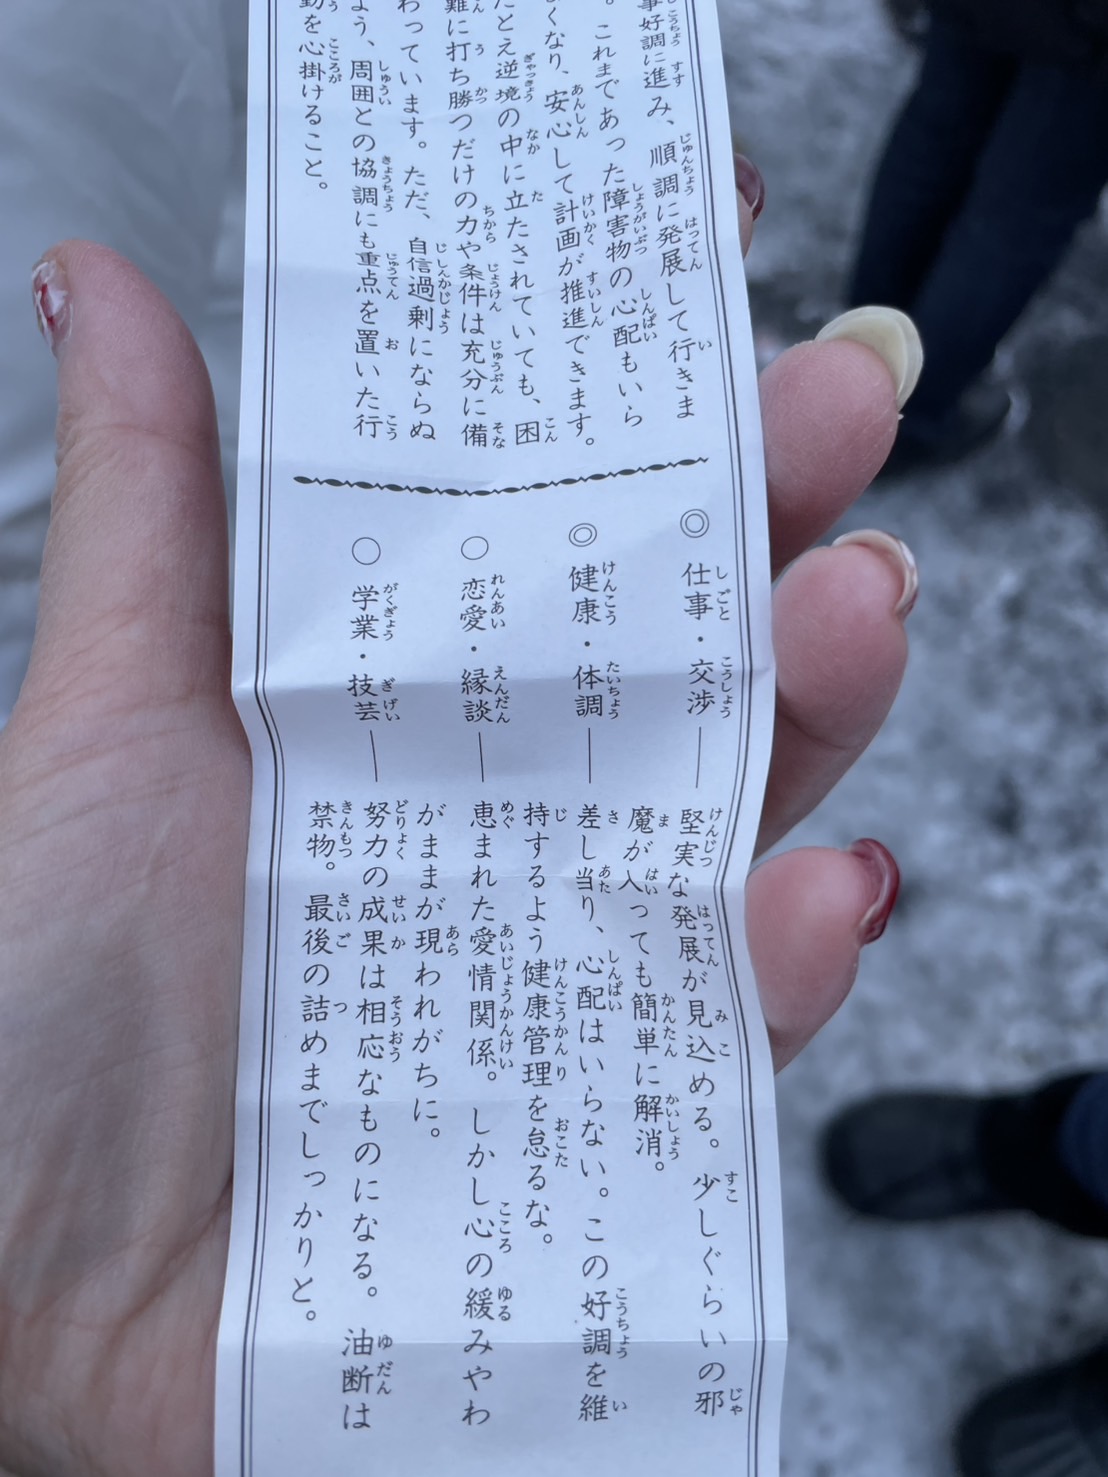 事好調に進み、順調に発展して行きま
。これまであった障害物の心配もいら
くなり、安心して計画が推進できます。
とえ逆境の中に立たされていても、困
難に打ち勝つだけの力や条件は充分に備
わっています。ただ、自信過剰にならぬ
よう、周囲との協調にも重点を置いた行
動を心掛けること。
◎仕事・交渉──堅実な発展が見込める。少しぐらいの邪
魔が入っても簡単に解消。
◎健康・体調──差し当り、心配はいらない。この好調を維
持するよう健康管理を怠るな。
○恋愛・縁談──恵まれた愛情関係。しかし心の緩みやわ
がままが現われがちに。
○学業・技芸──努力の成果は相応なものになる。油断は
禁物。最後の詰めまでしっかりと。